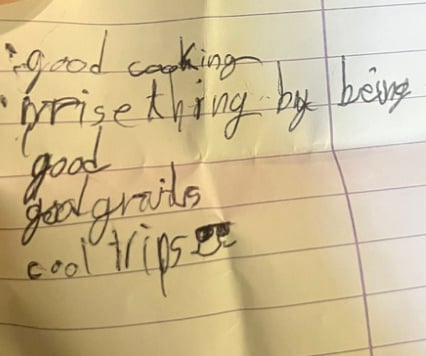 good cooking
prise thing by being
good
good grails
cool trips